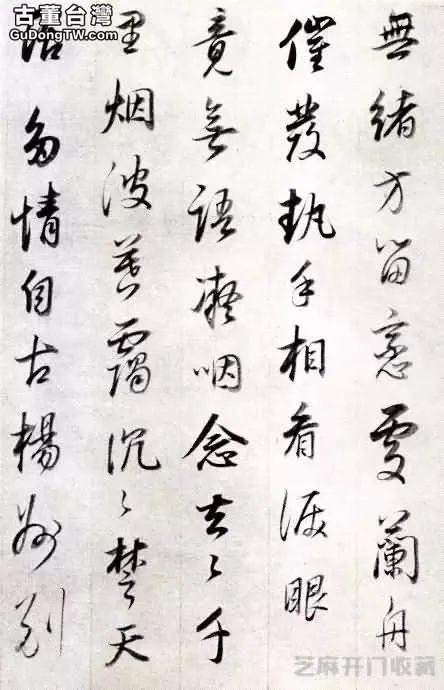 古董台灣
GuDongTW.com
無緒方留戀處蘭舟
催發執手相看淚眼
竟無語凝咽念去々千
里烟波暮靄沉々楚天
多情自古別
芝麻开门收藏